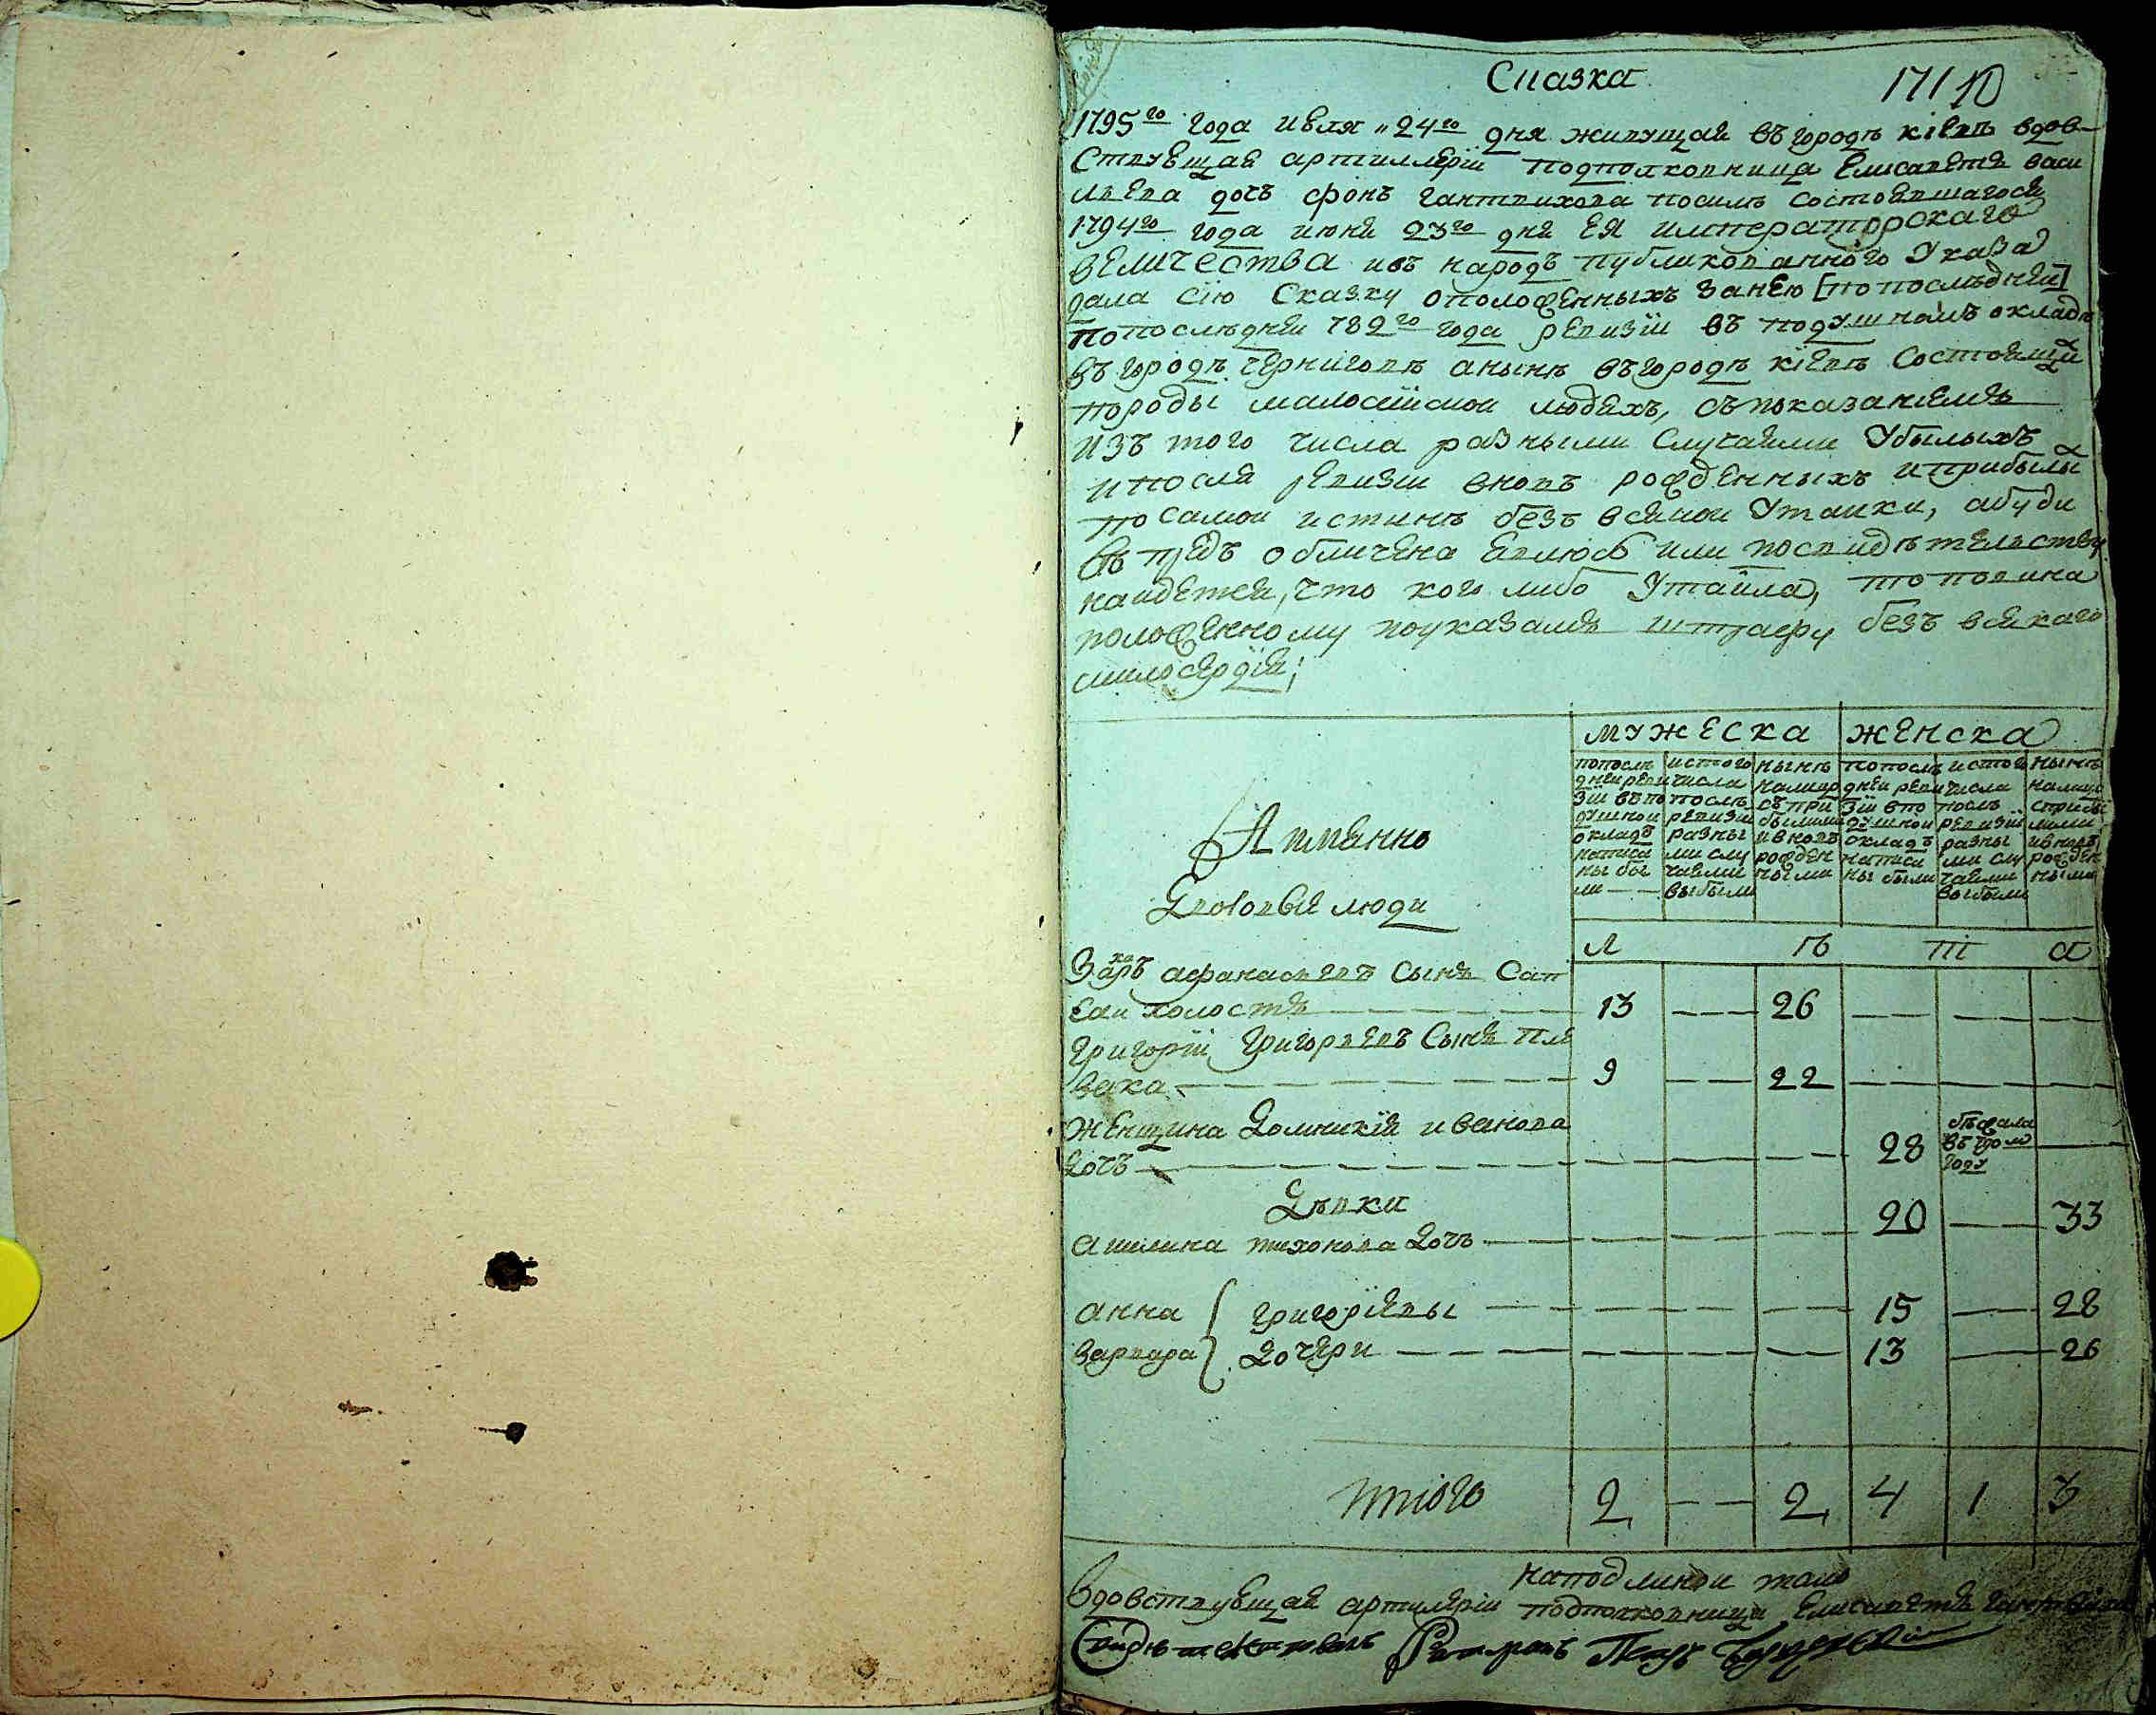 Сказка
171 10
1795го года июля 24го дня живущая въ городѣ кіевѣ вдов
ствующая артиллеріи подполковница Елисавета васи
льева дочь фонъ посилѣ состоявшагося
1794го года июня 23го дня ЕЯ императорскаго
величества ивъ народъ публикованного Указа
дала сію Сказку о положенныхъ за нею [по послѣдней]
по послѣдней 782го года ревизіи въ подушномъ окладѣ
въ городѣ черниговѣ а нынѣ въ городѣ кіевѣ состоящи
породы людехъ, съ показаніемъ
изъ того числа разными случаями убылыхъ
и послѣ ревизіи вновь рожденныхъ и прибылы
по самой истинѣ безъ всякой утайки, а буди
въ предъ обличена явлюсь или по свидѣтельству
найдется, что кого либо утаила, то повина
положенному по указамъ штрафу безъ всякаго
милосердія;
мужеска женска
по послѣ дней реви зіи въ по душной окладъ написа ны бы ли
ис того числа послѣ ревизіи разны ми слу чаями выбыли
нынѣ налицо съ при былыми и вновь рожден ными
по послѣ дней реви зіи в по душной окладъ написа ны были
ис того числа послѣ ревизіи разны ми слу чаями выбыли
нынѣ налицо с прибы лыми и вновь рожден ными
А именно
Дворовыя люди
л ѣ т а
Захаръ афанасьевъ сынъ Сап
ѣай холостъ 13 26
Григорій Григорьевъ Сынъ Пля
вака 9 22
Женщина Домникія иванова
дочь 28 бѣжала въ том году
Дѣвки
акилина тихонова дочь 20 33
анна григоріевы 15 28
варвара дочери 13 26
Итого 2 2 4 1 3
на подлиной тако
вдовствующая артилеріи подполковница Елисавета